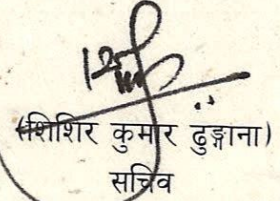 (शिशिर कुमार ढुङ्गाना)
सचिव